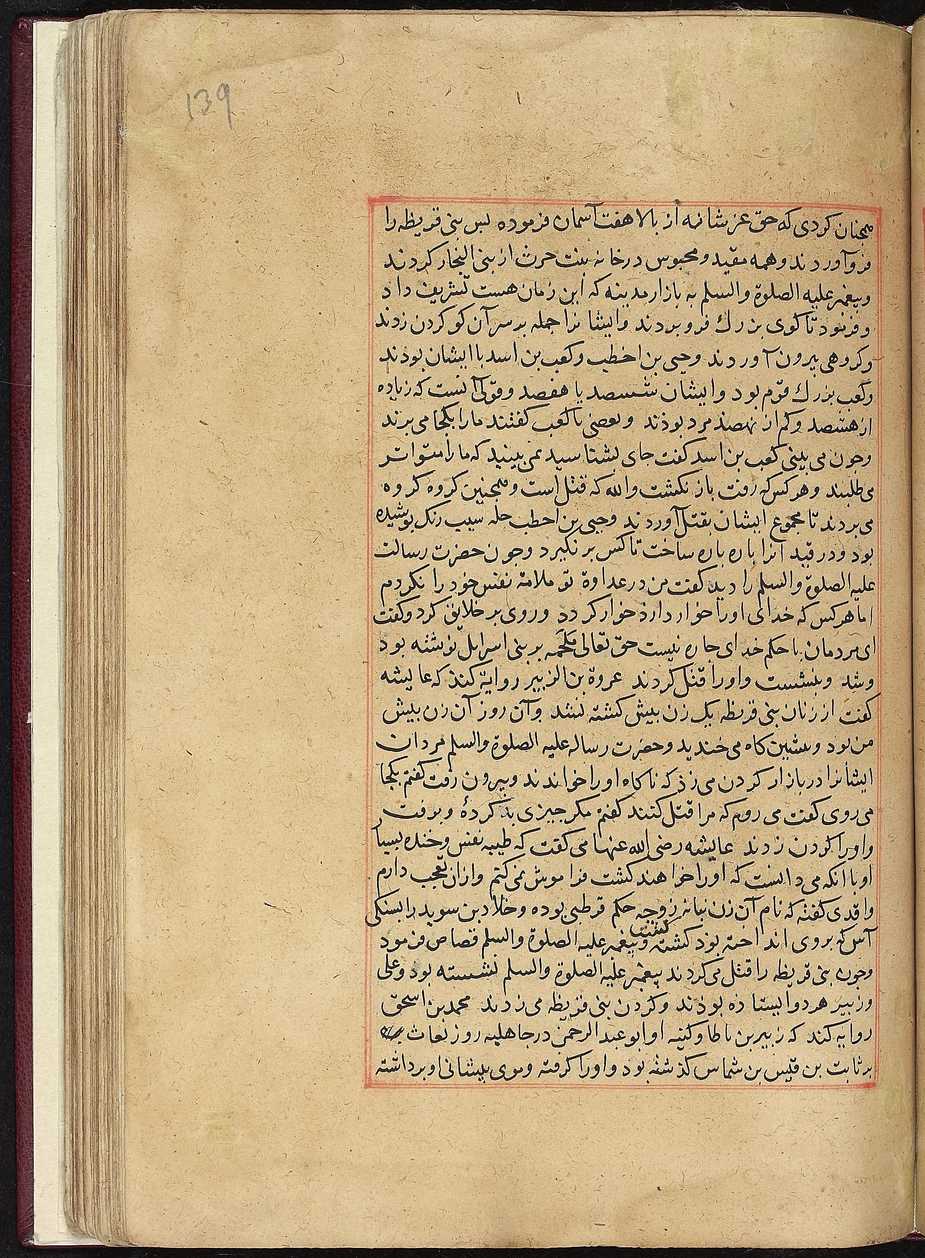 139
همجنان کردی که حق عز شانه از بالا هفت آسمان فرموده بس بنی قریظه را
فرو آوردند و همه مقید و محبوس در خانه بنت حرث از بنی النجار کردند
و بیغمبر علیه الصلوة والسلم به بازار مدینه که این زمان هست تشریف داد
و فرمود تا کوی بزرك فرو بردند و ایشانرا جمله بر سر آن کو کردن زدند
و کروهی بیرون آوردند و حیی بن اخطب و کعب بن اسد با ایشان بوذند
و کعب بزرك قوم بود و ایشان ششصد یا هفصد و قولی آنست که زیاده
از هشصد و کم از نهصذ مرد بوذند و بعضی با کعب کفتند ما را بکجا می برند
و جون می بینی کعب بن اسد کفت جای نشناسید نمی بینید که ما را متواتر
می طلبند و هر کس که رفت باز نکشت والله که قتل است و همجنین کروه کروه
می بردند تا مجموع ایشان بقتل آوردند و حیی بن اخطب حله سیب رنك بوشیده
بود و در قید آنرا باره باره ساخت تا کس بر نکیرد و جون حضرت رسالت
علیه الصلوة والسلم را دید کفت من در عداوة تو ملامة نفس خود را نکردم
اما هر کس که خدای او را خوار دارد خوار کردد و روی بر خلایق کرد و کفت
ای مردمان با حکم خدای جاره نیست حق تعالی ملحمه بر بنی اسرایل نوشته بود
و شد و بنشست و او را قتل کردند عروة بن الزبیر روایة کند که عایشه
کفت از زنان بنی قریظه یك زن بیش کشته نشد و آن روز آن زن بیش
من بود و می خندید و حضرت رساله علیه الصلوة والسلم مردان
ایشانرا در بازار کردن می زذ که ناکاه او را خواندند و بیرون رفت کفتم بکجا
می روی کفت می روم که مرا قتل کنند کفتم مکر جیزی بد کردهٔ و برفت
و او را کردن زدند عایشه رضی الله عنها می کفت که طیبه نفس و خنده بسیا
او با انکه می دانست که او را خواهند کشت فراموش نمی کنم و از ان تعجب دارم
واقدی کفته که نام آن زن نباته زوجه حکم قرظی بوده و خلاد بن سوید را بسنکی
آس که بر وی انداخته بود کشته و بیغمبر علیه الصلوة والسلم قصاص فرمود
و جون بنی قریظه را قتل می کردند بیغمبر علیه الصلوة والسلم نشسته بود و علی
و زبیر هر دو ایستاده بوذند و کردن بنی قریظه می زدند محمد بن اسحق
روایه کند که زبیر بن باطا و کنیه او ابو عبد الرحمن در جاهلیه روز بعاث
بر ثابت بن قیس بن شماس کذشته بود و او را کرفته و موی بیشانی او برداشته